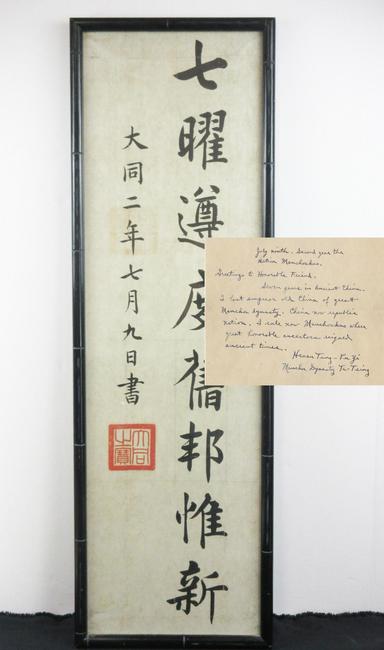 七曜遵度舊邦惟新
大同二年七月九日書
大同之寶
July ninth. Second year the
Nation Manchukuo.
Greetings to Honorable Friend.
Seven in Ancient China.
I last emperor old China of great
Manchu dynasty. China now republic
nation. I rule now Manchukuo where
great honorable ancestors reigned
ancient times.
Hsuan Tung - Pu Yi
Manchu Dynasty Ta-Tsing